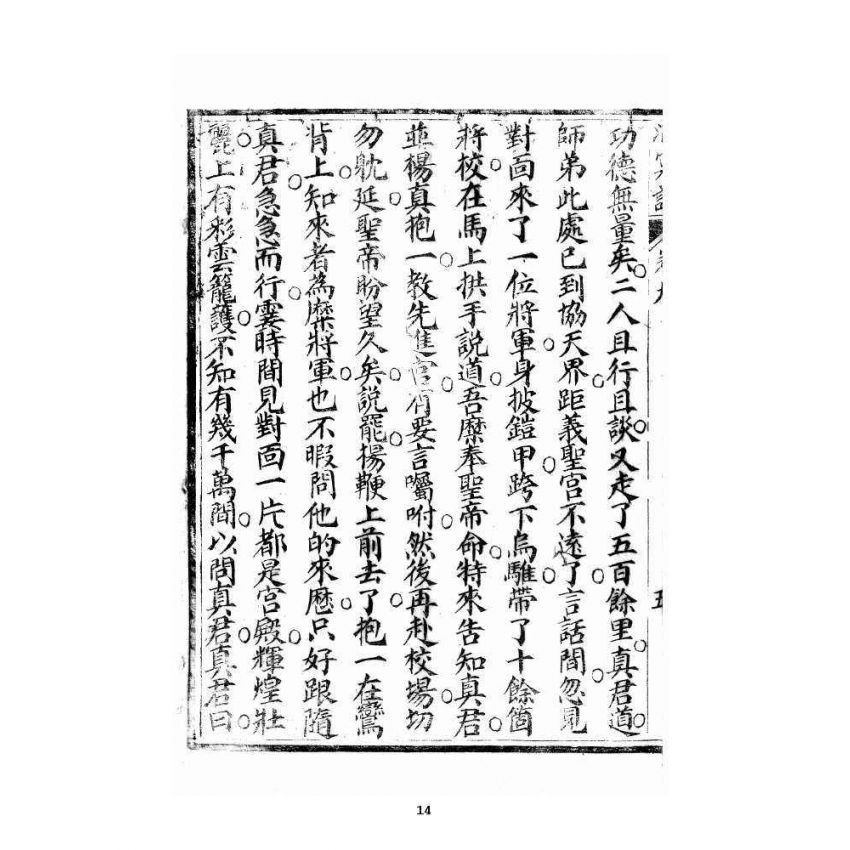 功德無量矣二人且行且談又走了五百餘里真君道
師弟此處已到協天界距義聖宮不遠了言話間忽見
對面來了一位將軍身披鎧甲跨下烏騅帶了十餘箇
將校在馬上拱手說道吾糜奉聖帝命特來告知真君
並楊真抱一教先進宮有要言囑咐然後再赴校場切
勿躭延聖帝盼望久矣說罷揚鞭上前去了抱一在鸞
背上知來者為糜將軍也不暇問他的來歷只好跟隨
真君急急而行霎時間見對面一片都是宮殿輝煌壯
麗上有彩雲籠護不知有幾千萬間以問真君真君曰
14